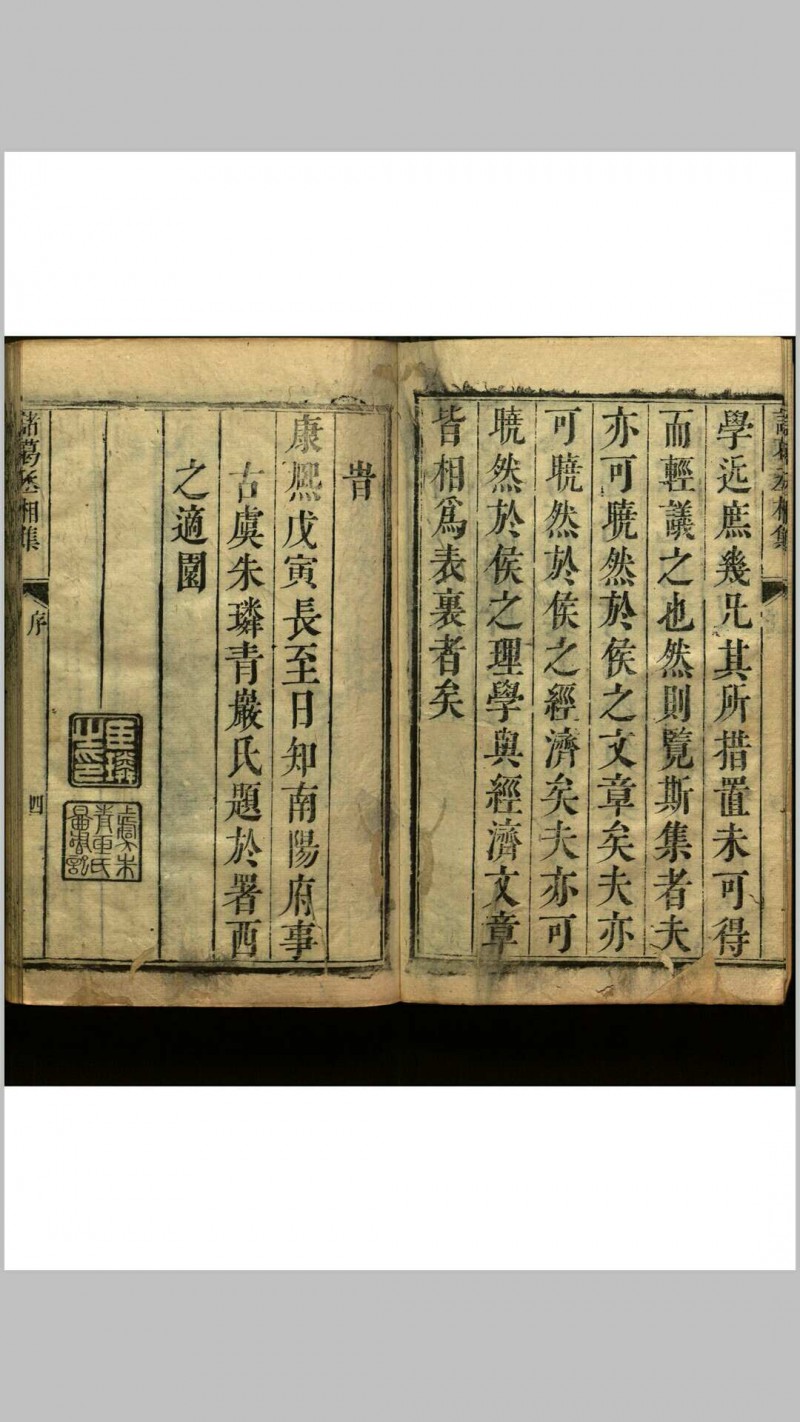 諸葛丞相集
學近庶幾凡其所措置未可得
而輕議之也然則覽斯集者夫
亦可曉然於侯之文章矣夫亦
可曉然於侯之經濟矣夫亦可
曉然於侯之理學與經濟文章
皆相為表裏者矣
旹
康熙戊寅長至日知南陽府事
古虞朱璘青巖氏題於署西
之適園
諸葛丞相集
序
四